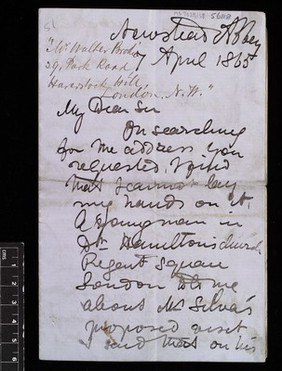 Newstead Abbey
"Mr Walter Brodie
59, Park Road
7 April 1865
Haverstock Hill
London. N.W."
My Dear Sir
On searching
for the address you
requested, I find
that I cannot lay
my hands on it
A young man in
Dr Hamilton's church
Regent Square
London told me
about Mr Silva's
proposed visit
I said that on his